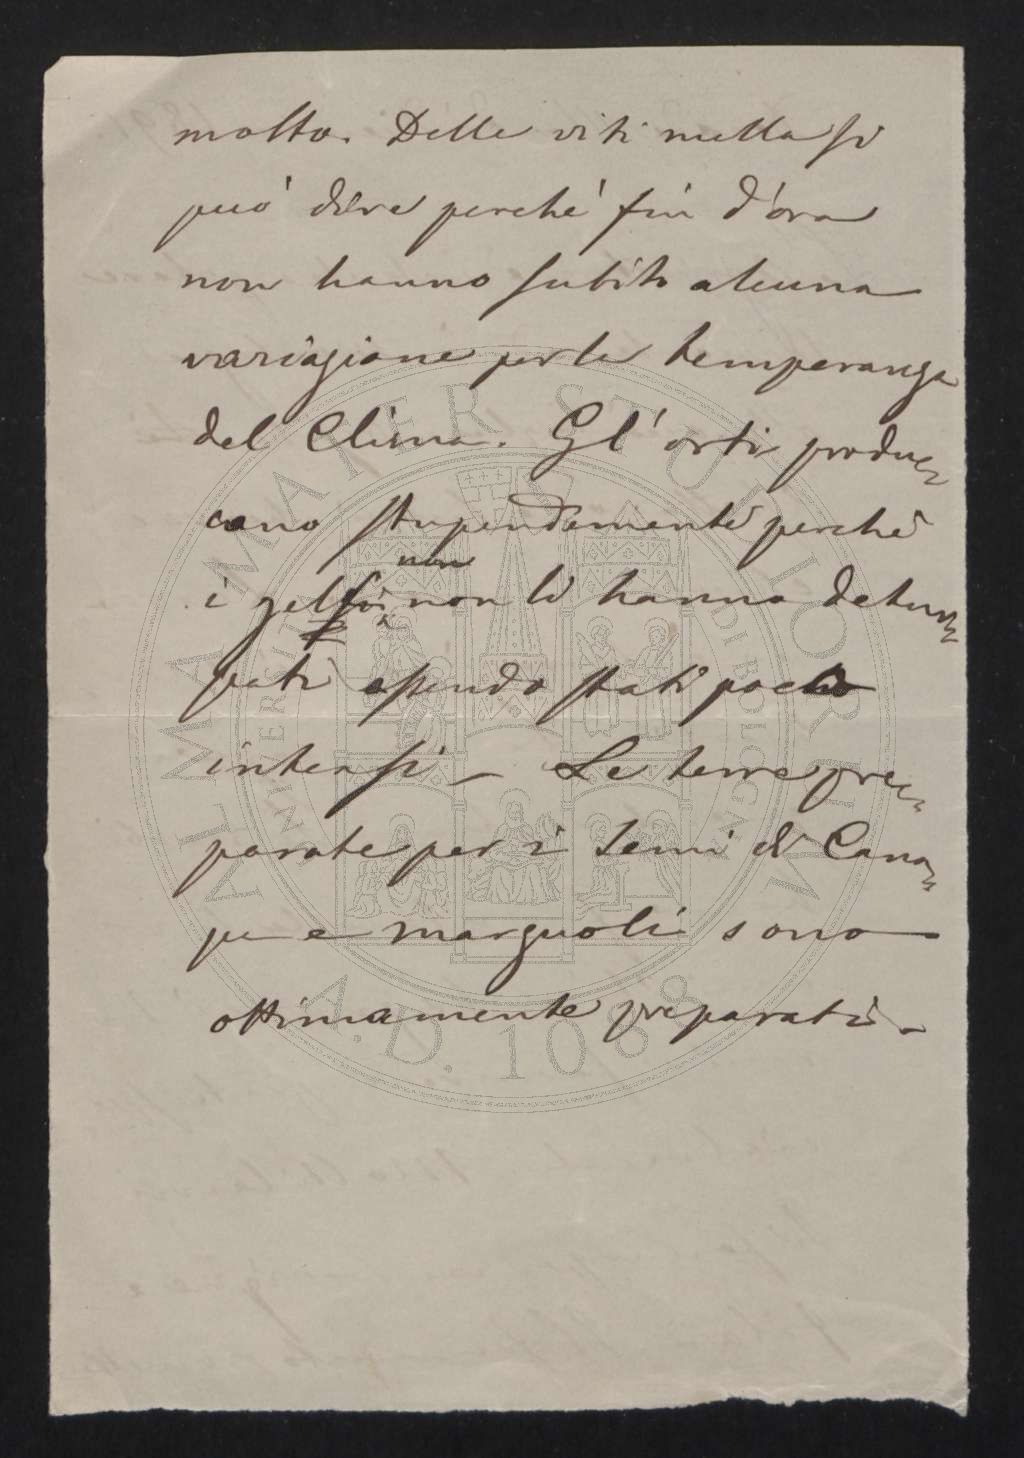 molto. Delle viti nulla si
può dire perché fin d'ora
non hanno subito alcuna
variazione per la temperanza
del Clima. Gl'orti produ=
cono stupendamente perché
non
i gelsi non li hanno detur=
pati essendo stati poco
intensi – Le terre pre=
parate per i semi di Cana=
pe e marzuoli sono
ottimamente preparati.
ALMA MATER STUDIORUM
UNIVERSITÀ DI BOLOGNA
A.D. 1088